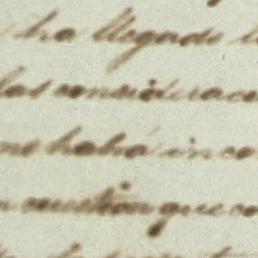 ha llegado
las considerac
me habá in co
cuestion que co